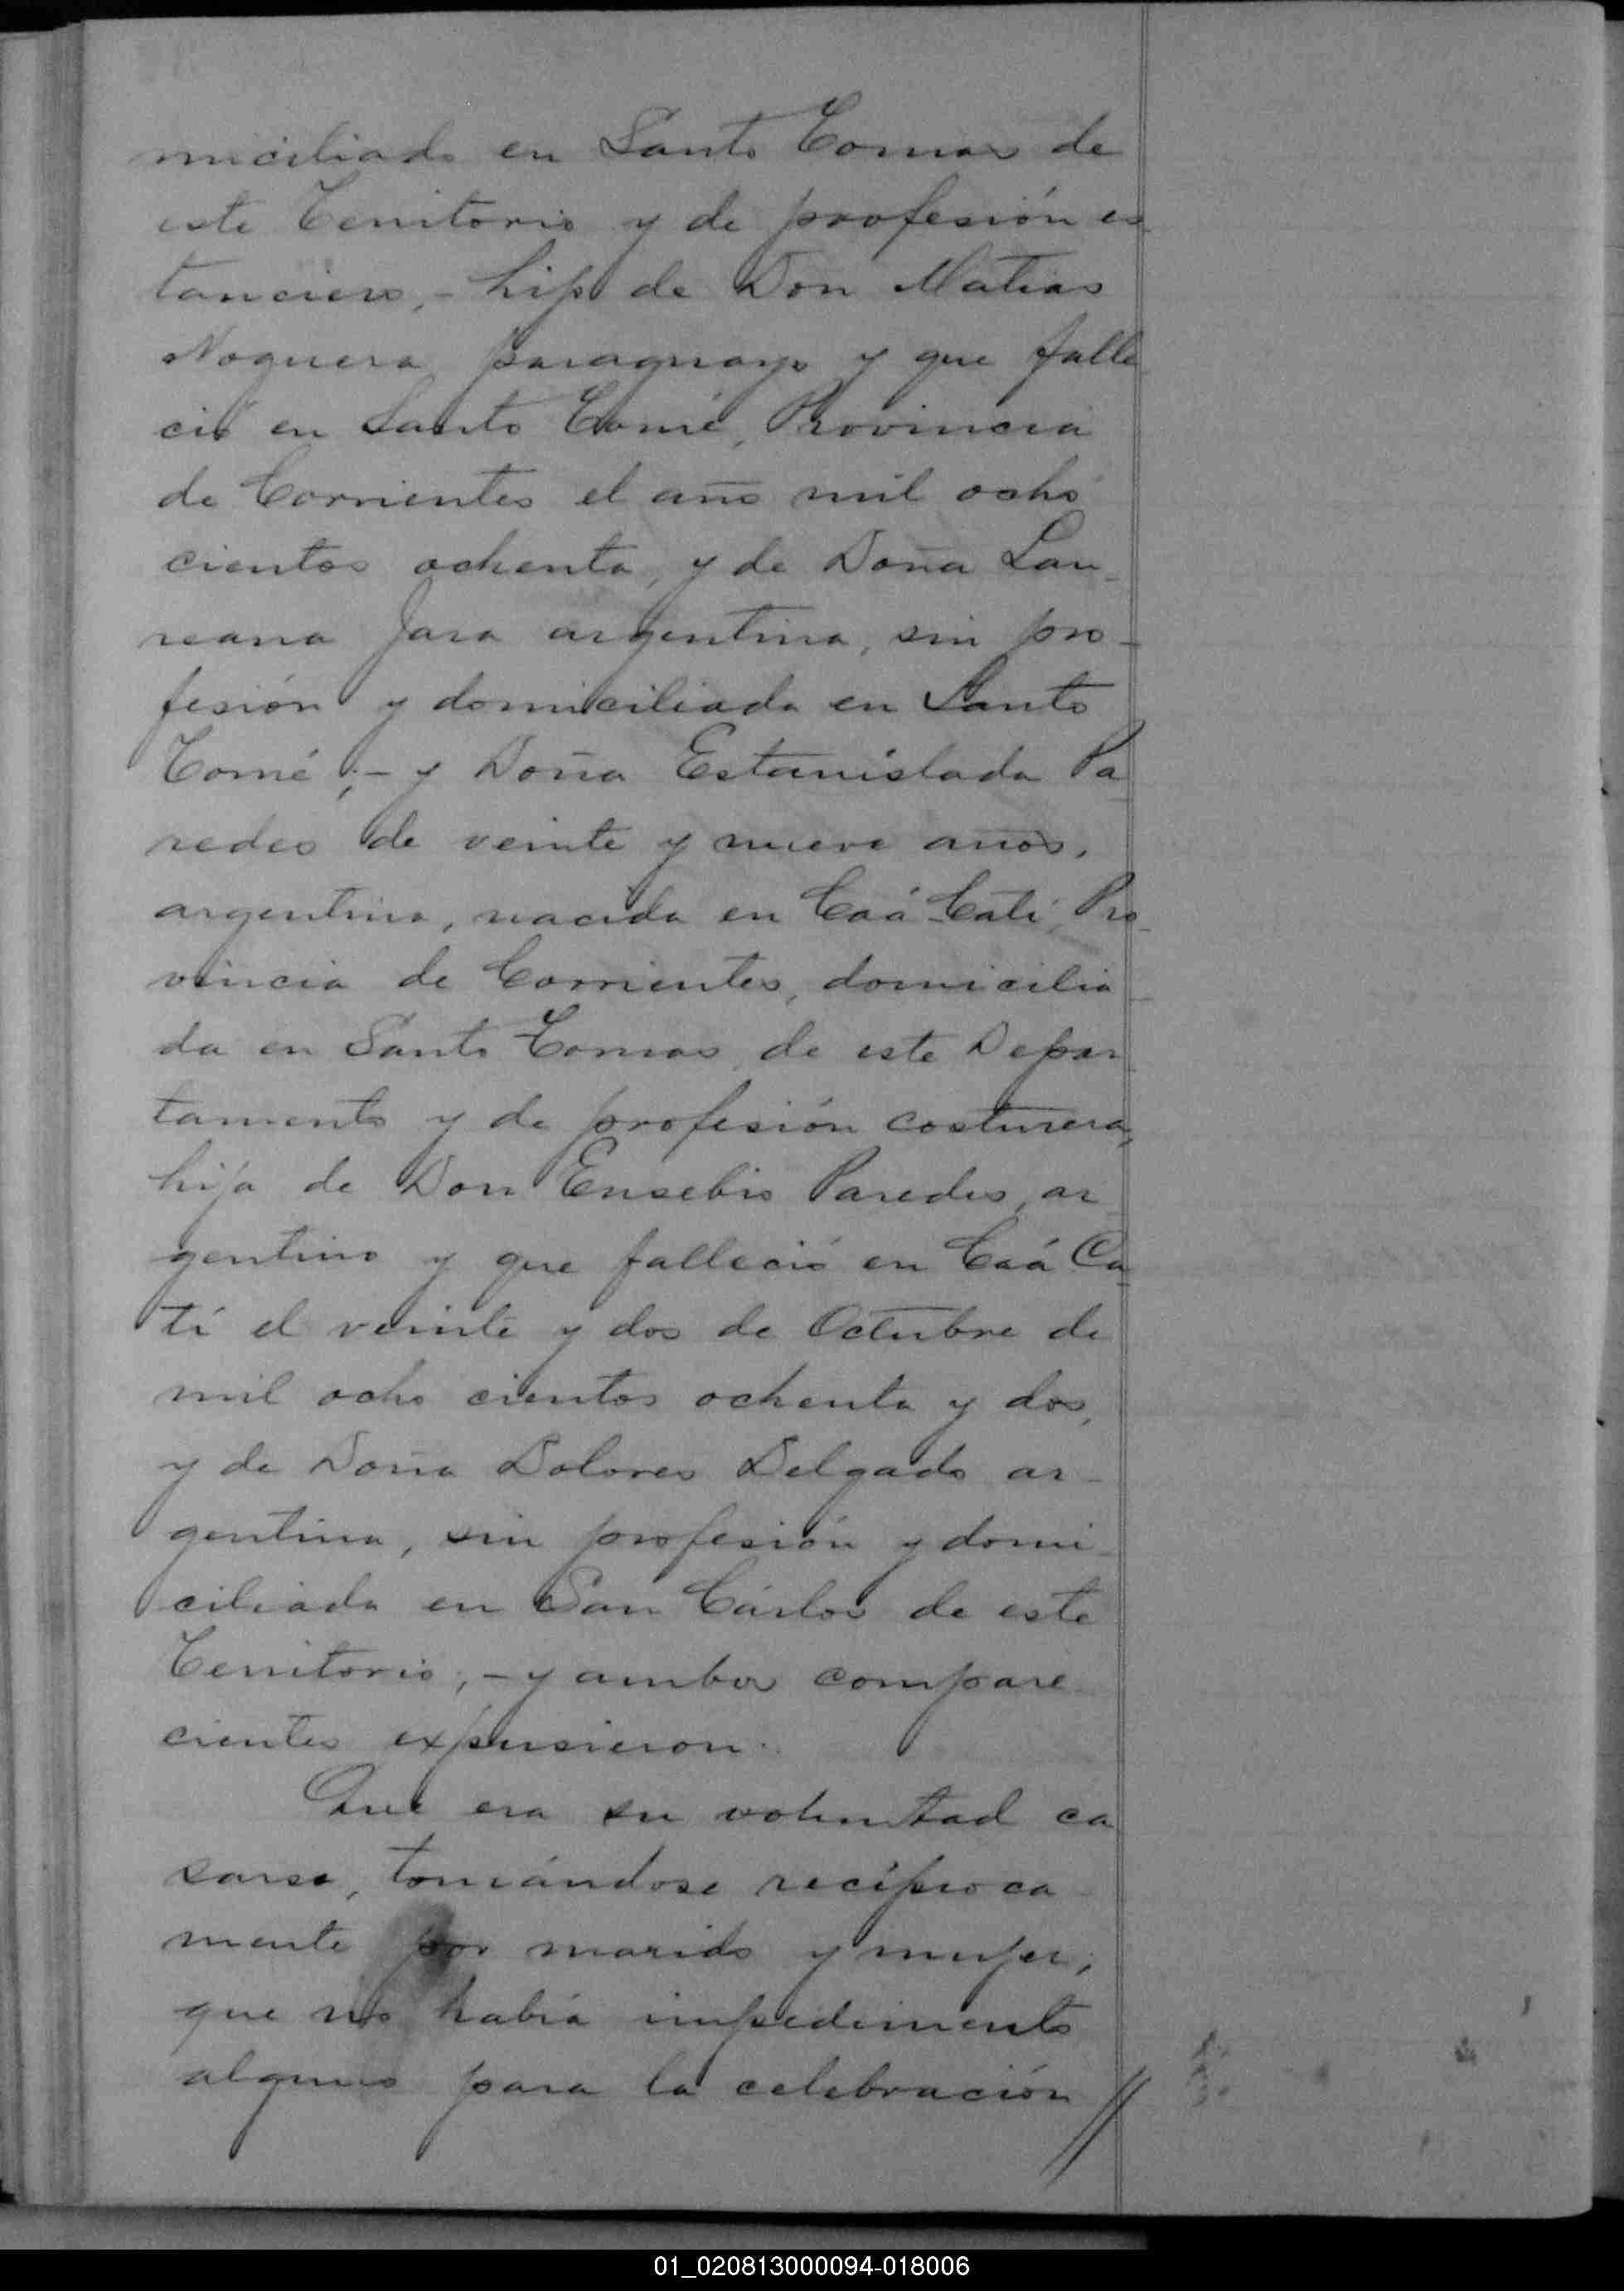 miciliado en Santo Tomas de
este Territorio y de profesión es
tanciero, - hijo de Don Matias
Noguera, paraguayo y que falle
ció en Santo Tomé, Provincia
de Corrientes el año mil ocho
cientos ochenta, y de Doña Lau_
reana Jara argentina, sin pro_
fesión y domiciliada en Santo
Tomé; - y Doña Estanislada Pa_
redes de veinte y nueve años,
argentina, nacida en Caá Catí, Pro_
vincia de Corrientes, domicilia_
da en Santo Tomas, de este Depar_
tamento y de profesión costurera,
hija de Don Eusebio Paredes, ar_
gentino y que falleció en Caá Ca_
tí el veinte y dos de Octubre de
mil ocho cientos ochenta y dos,
y de Doña Dolores Delgado ar_
gentina, sin profesión y domi_
ciliada en San Cárlos de este
Territorio; - y ambos compare_
cientes expusieron:
Que era su voluntad ca
sarse, tomándose recíproca_
mente por marido y mujer;
que no había impedimento
alguno para la celebración //
01_020813000094-018006